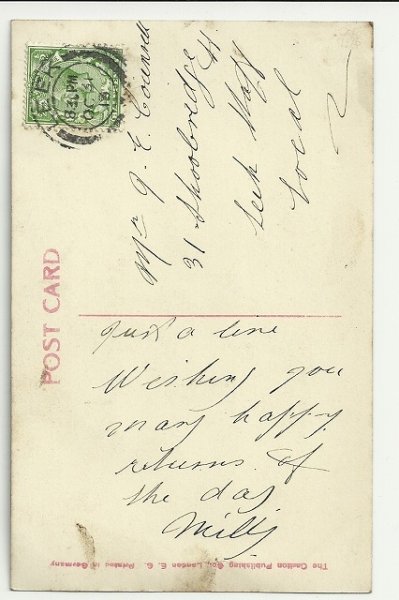 POST CARD
LEEK
8.30 PM
OC 31
13
Mr G. E. Counsell
31 Shoobridge St
Leek Staff
Local
Just a line
Wishing you
many happy
returns of
the day
Milly
The Carlton Publishing Co., London E. C. Printed in Germany